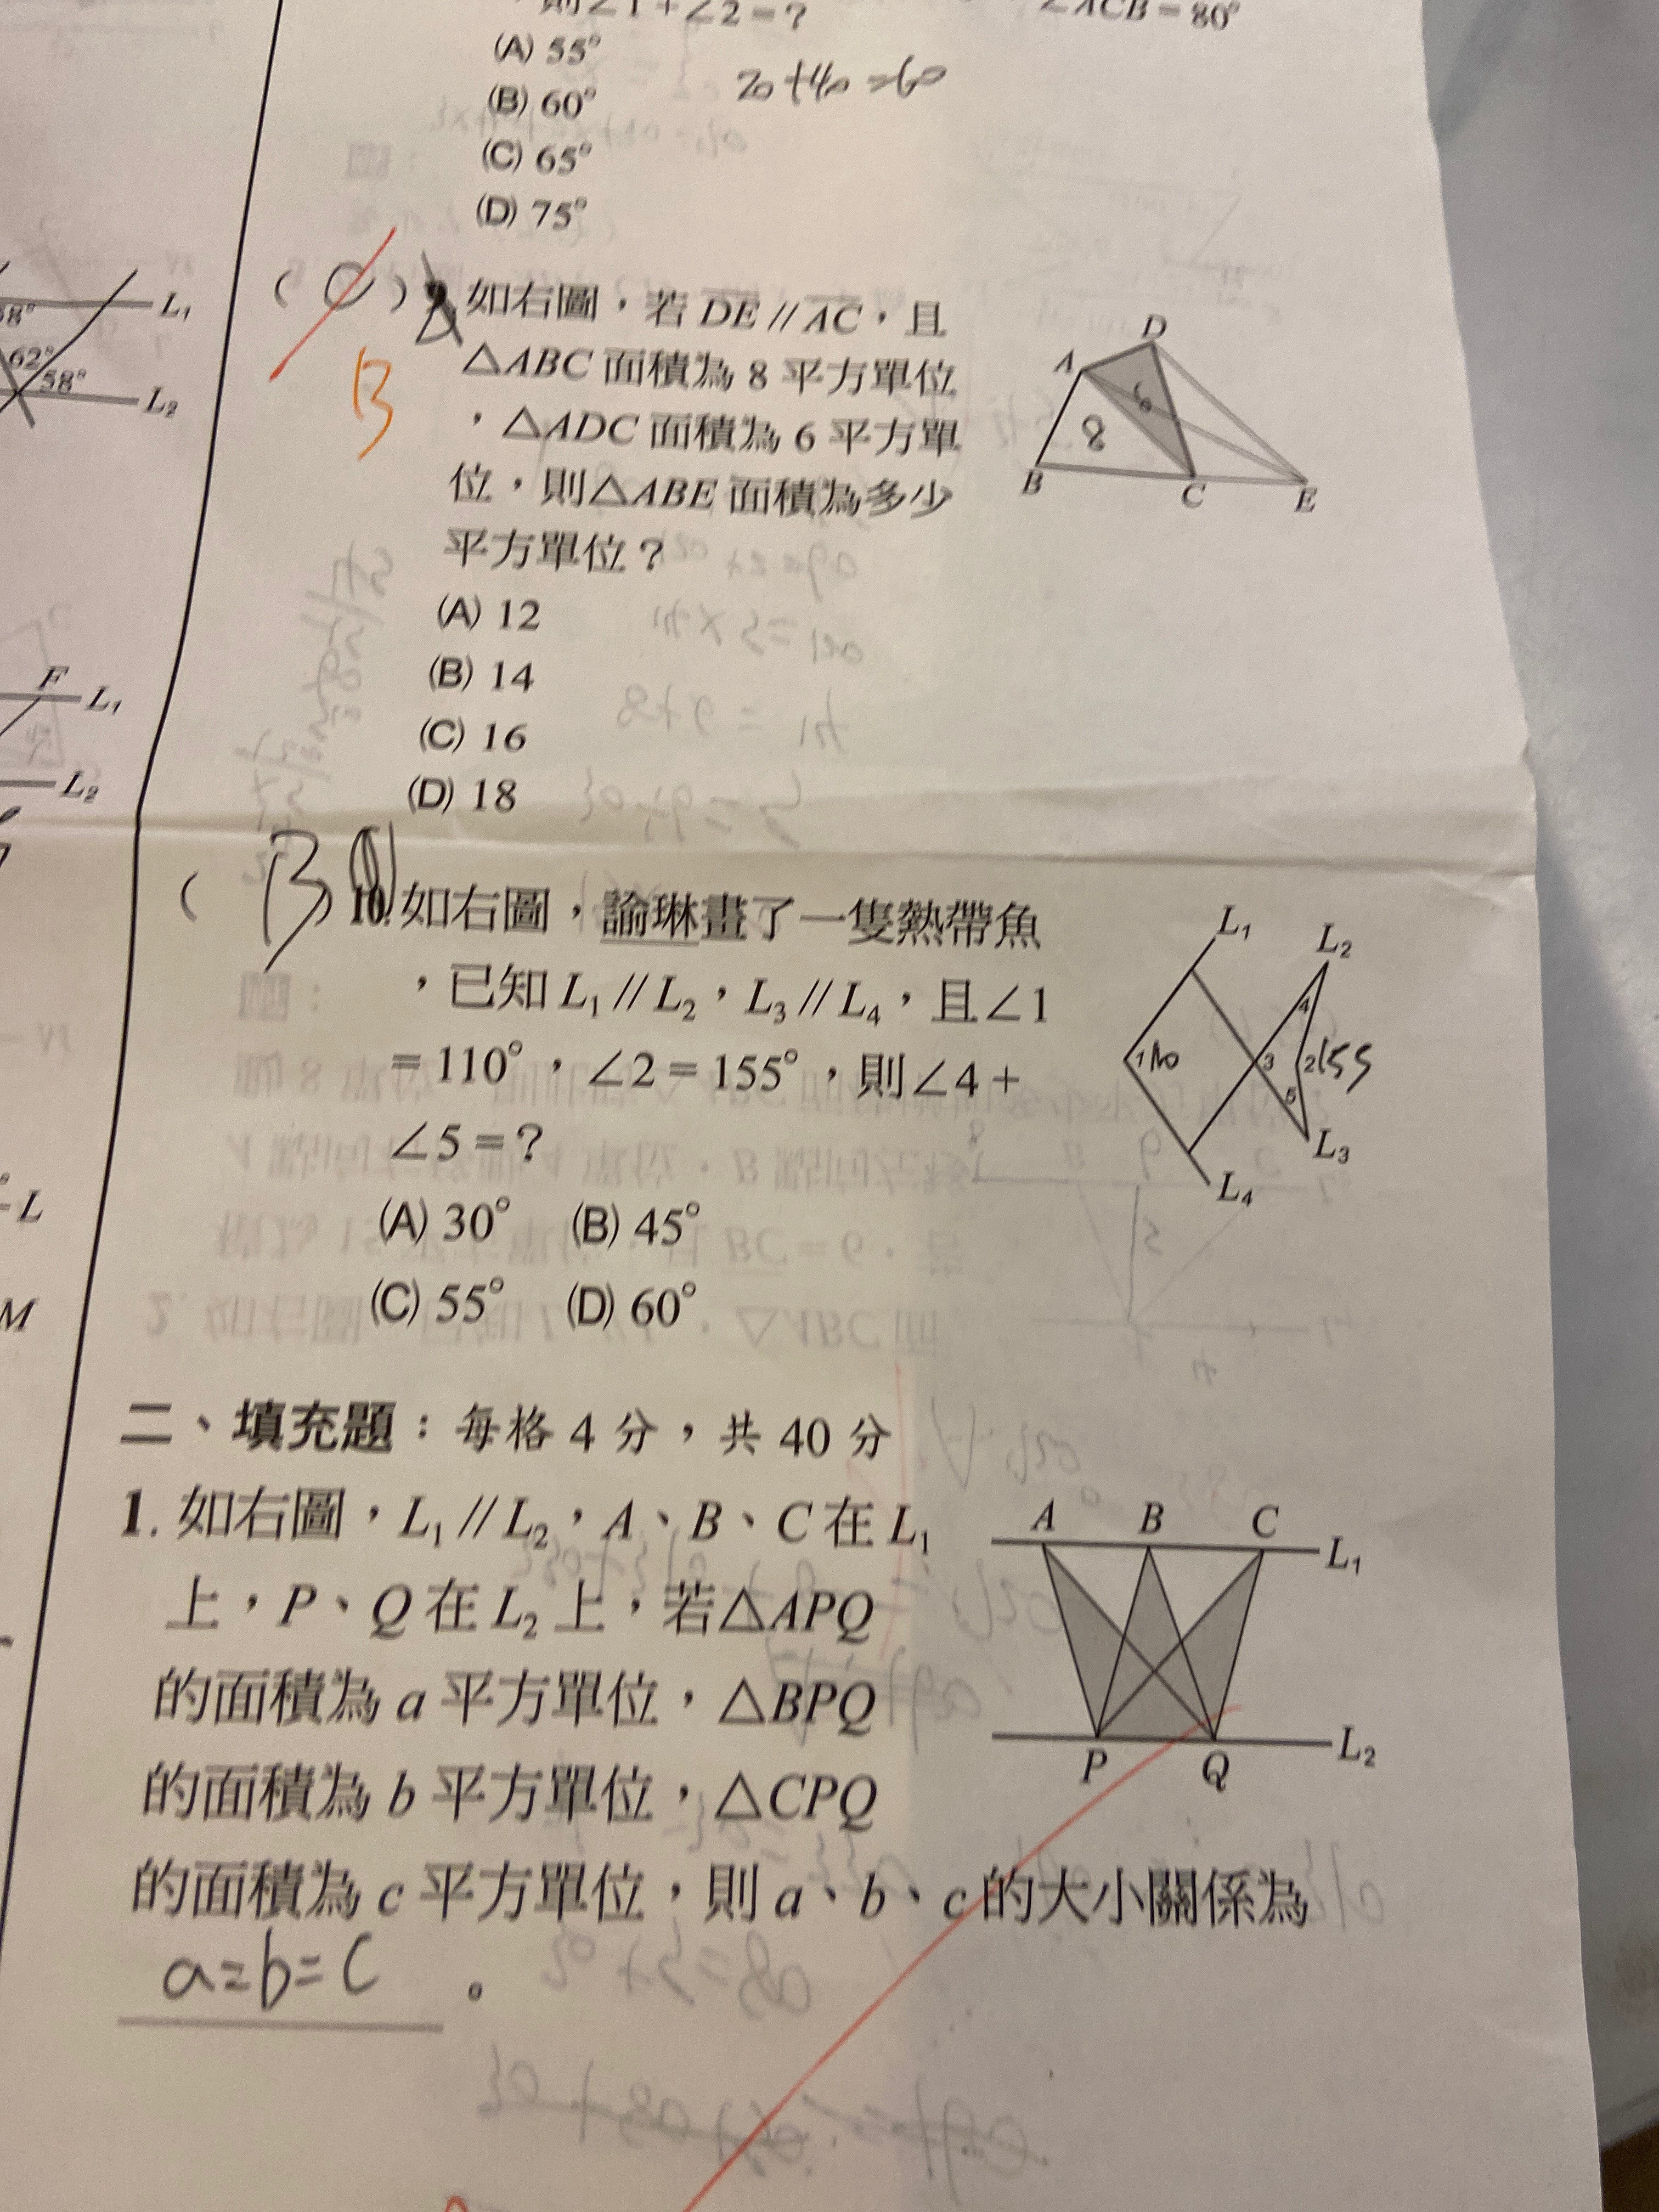 則∠1+∠2=?
∠ACB=80°
(A) 55°
20+40=60
(B) 60°
(C) 65°
(D) 75°
58°
L1
62°
58°
L2
F
L1
L2
L
M
(C)
B
如右圖，若DE//AC，且
△ABC 面積為 8 平方單位
，△ADC 面積為 6 平方單
位，則△ABE 面積為多少
平方單位？
(A) 12
(B) 14
(C) 16
(D) 18
D
A
6
8
B
C
E
(B) 10. 如右圖，諭琳畫了一隻熱帶魚
，已知 L1//L2，L3//L4，且∠1
=110°，∠2=155°，則∠4+
∠5=？
(A) 30° (B) 45°
(C) 55° (D) 60°
L1
L2
4
1 110
3
2 155
5
L3
L4
二、填充題：每格 4 分，共 40 分
1. 如右圖，L1//L2，A、B、C 在 L1
上，P、Q 在 L2 上，若△APQ
的面積為 a 平方單位，△BPQ
的面積為 b 平方單位，△CPQ
的面積為 c 平方單位，則 a、b、c 的大小關係為
a=b=c 。
A B C
L1
P Q
L2